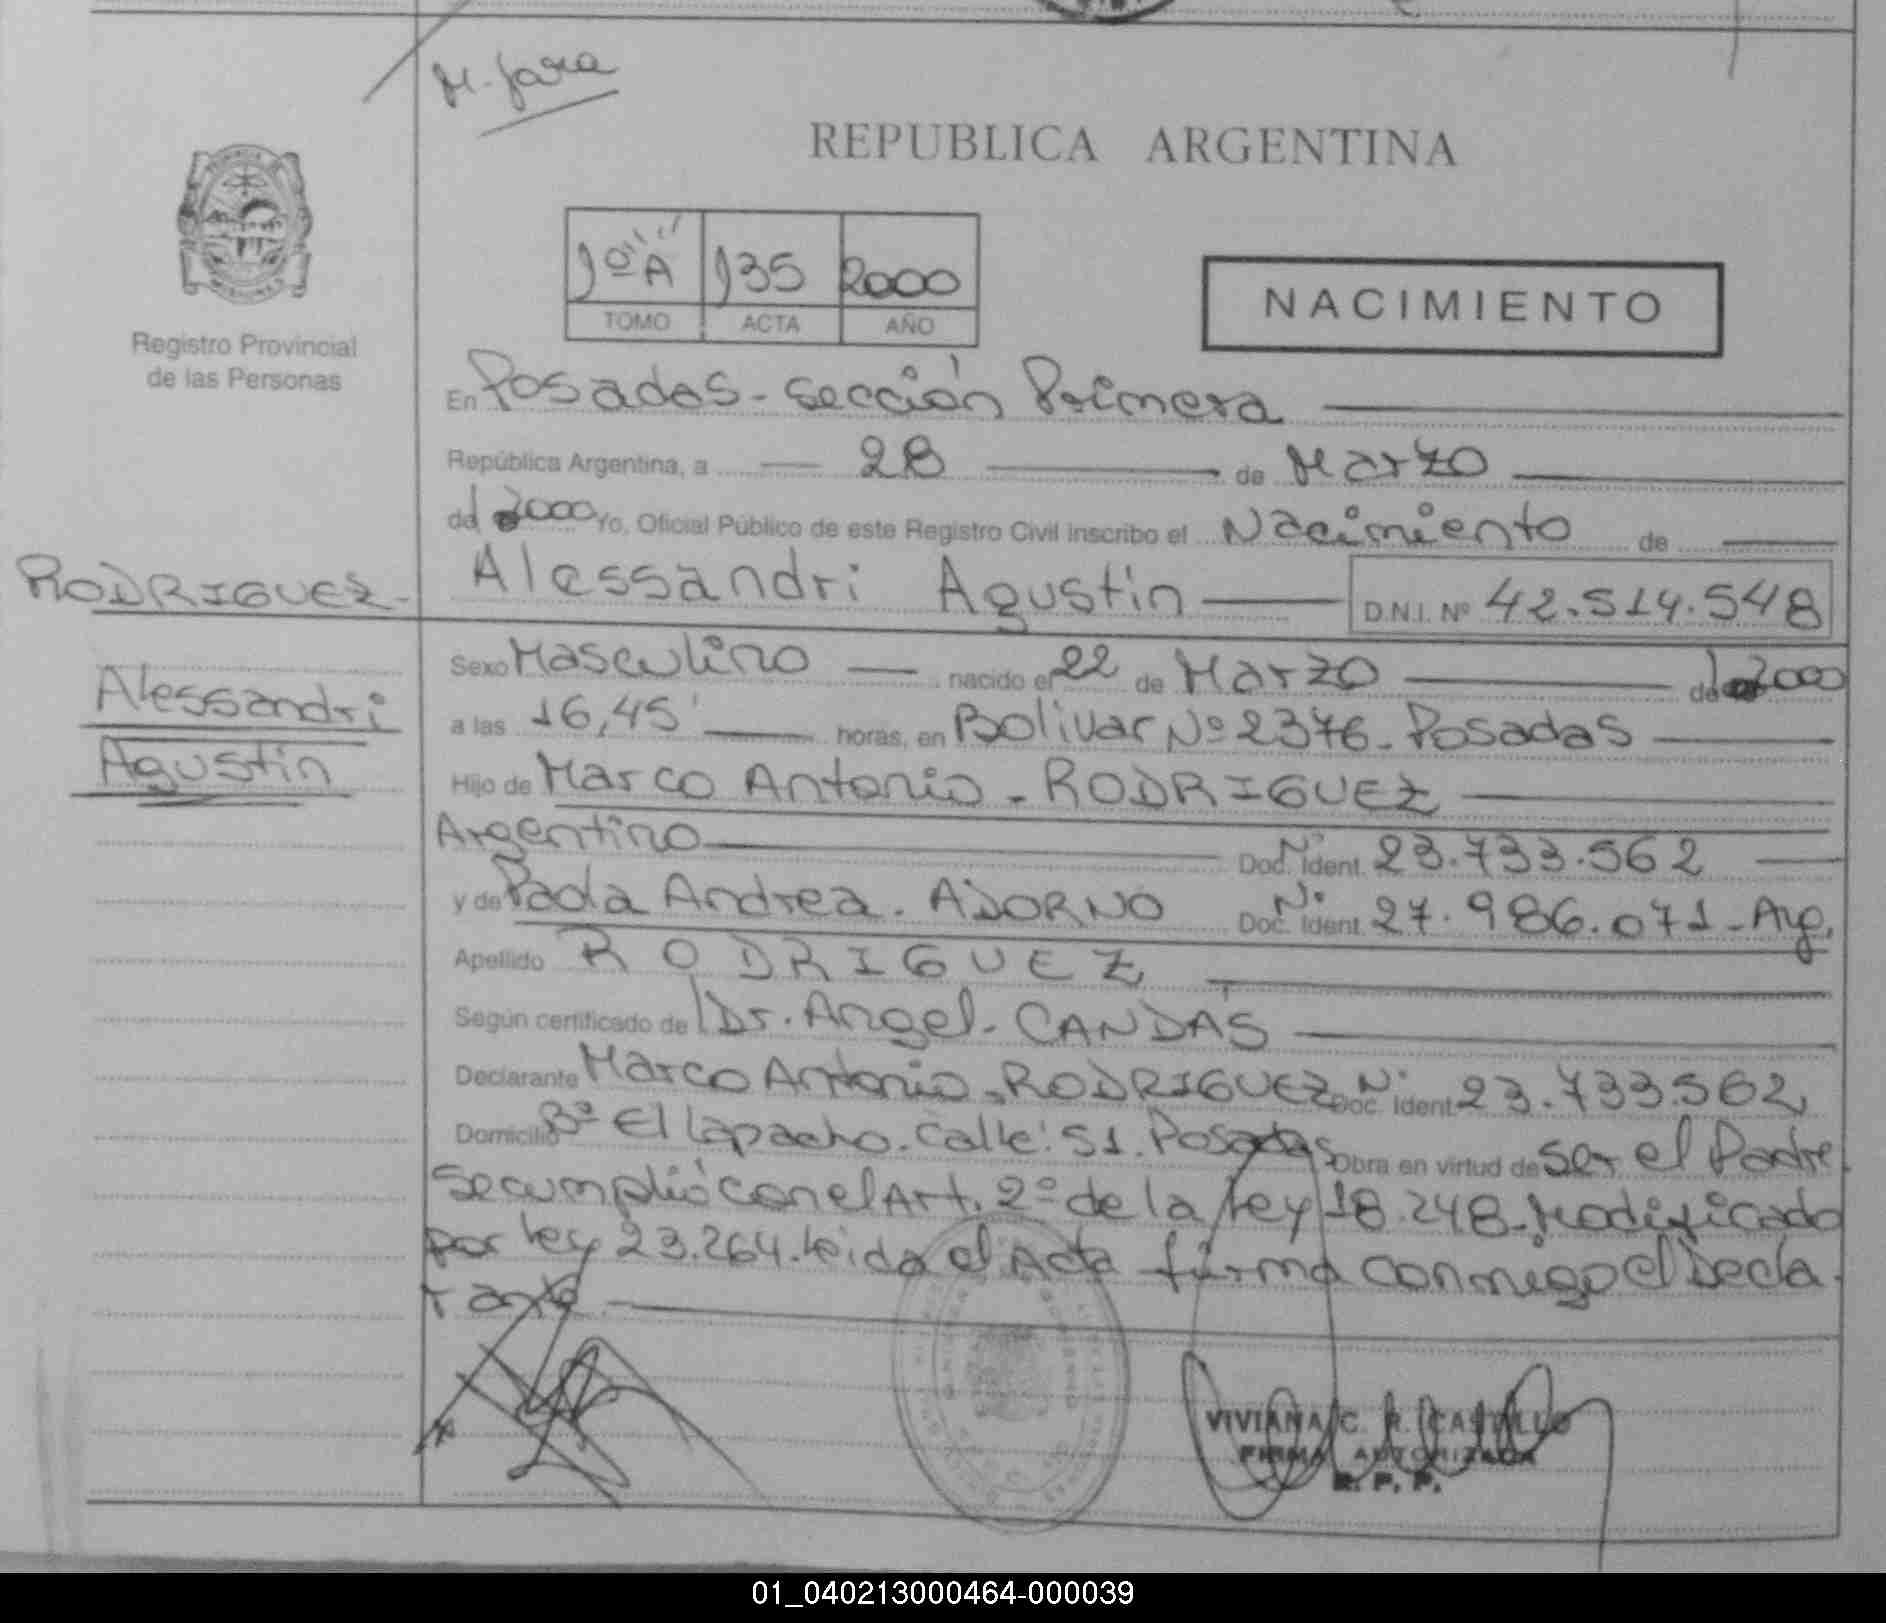 M. Jara
REPUBLICA ARGENTINA
1º A 135 2000
TOMO ACTA AÑO
NACIMIENTO
Registro Provincial
de las Personas
En Posadas - Sección Primera
República Argentina, a 28 de Marzo
de 2000 Yo, Oficial Público de este Registro Civil inscribo el Nacimiento de
RODRIGUEZ - Alessandri Agustin D.N.I. Nº 42.514.548
Alessandri
Agustin
Sexo Masculino nacido el 22 de Marzo de 2000
a las 16,45' horas, en Bolivar Nº 2376 - Posadas
Hijo de Marco Antonio - RODRIGUEZ
Argentino Doc. Ident. Nº 23.733.562
y de Paola Andrea - ADORNO Doc. Ident. Nº 27.986.071 - Arg.
Apellido RODRIGUEZ
Según certificado de Dr. Angel - CANDÁS
Declarante Marco Antonio - RODRIGUEZ Doc. Ident. Nº 23.733.562
Domicilio Bº El Lapacho. Calle: 51. Posadas Obra en virtud de ser el Padre.
Se cumplió con el Art. 2º de la Ley 18.248 - Modificado
por Ley 23.264. Leida el Acta firma conmigo el Decla-
rante
VIVIANA C. R. CASTILLO
FIRMA AUTORIZADA
R. P. P.
01_040213000464-000039